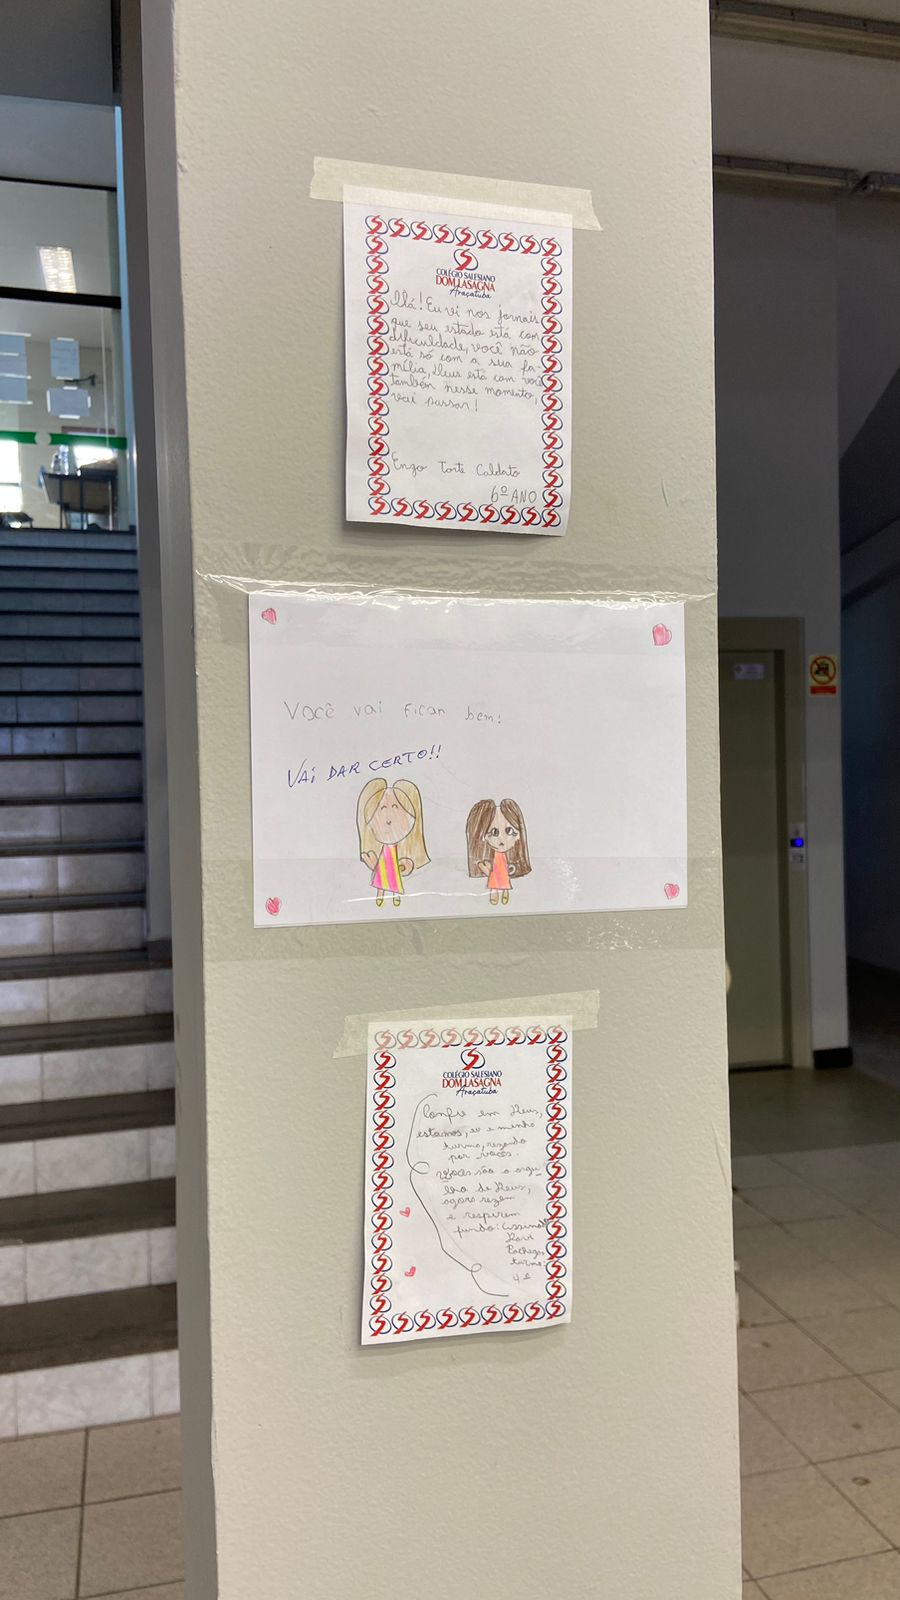 COLÉGIO SALESIANO
DOM LASAGNA
Araçatuba
Olá! Eu vi nos jornais
que seu estado está com
dificuldade, você não
está só com a sua fa-
mília, Deus está com você
também nesse momento,
vai passar!
Enzo Torte Caldato
6º ANO
Você vai ficar bem!
VAi DAR CERTO!!
COLÉGIO SALESIANO
DOM LASAGNA
Araçatuba
Confie em Deus,
estamos, eu e minha
turma, rezando
por vocês.
Vocês são o orgu-
lho de Deus,
agora rezem
e respirem
fundo!
turma:
4º